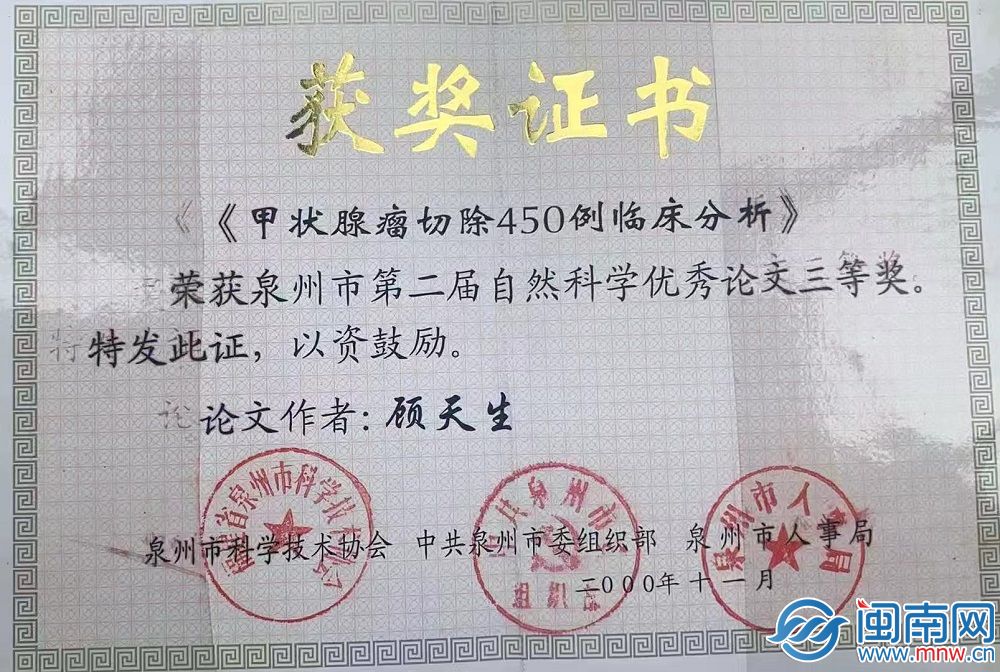 获奖证书
《甲状腺瘤切除450例临床分析》
荣获泉州市第二届自然科学优秀论文三等奖。
特发此证，以资鼓励。
论文作者：顾天生
泉州市科学技术协会 中共泉州市委组织部 泉州市人事局
二000年十一月
省泉州市科学技
共泉州市
组织
泉州市人事局
闽南网
www.mnw.cn